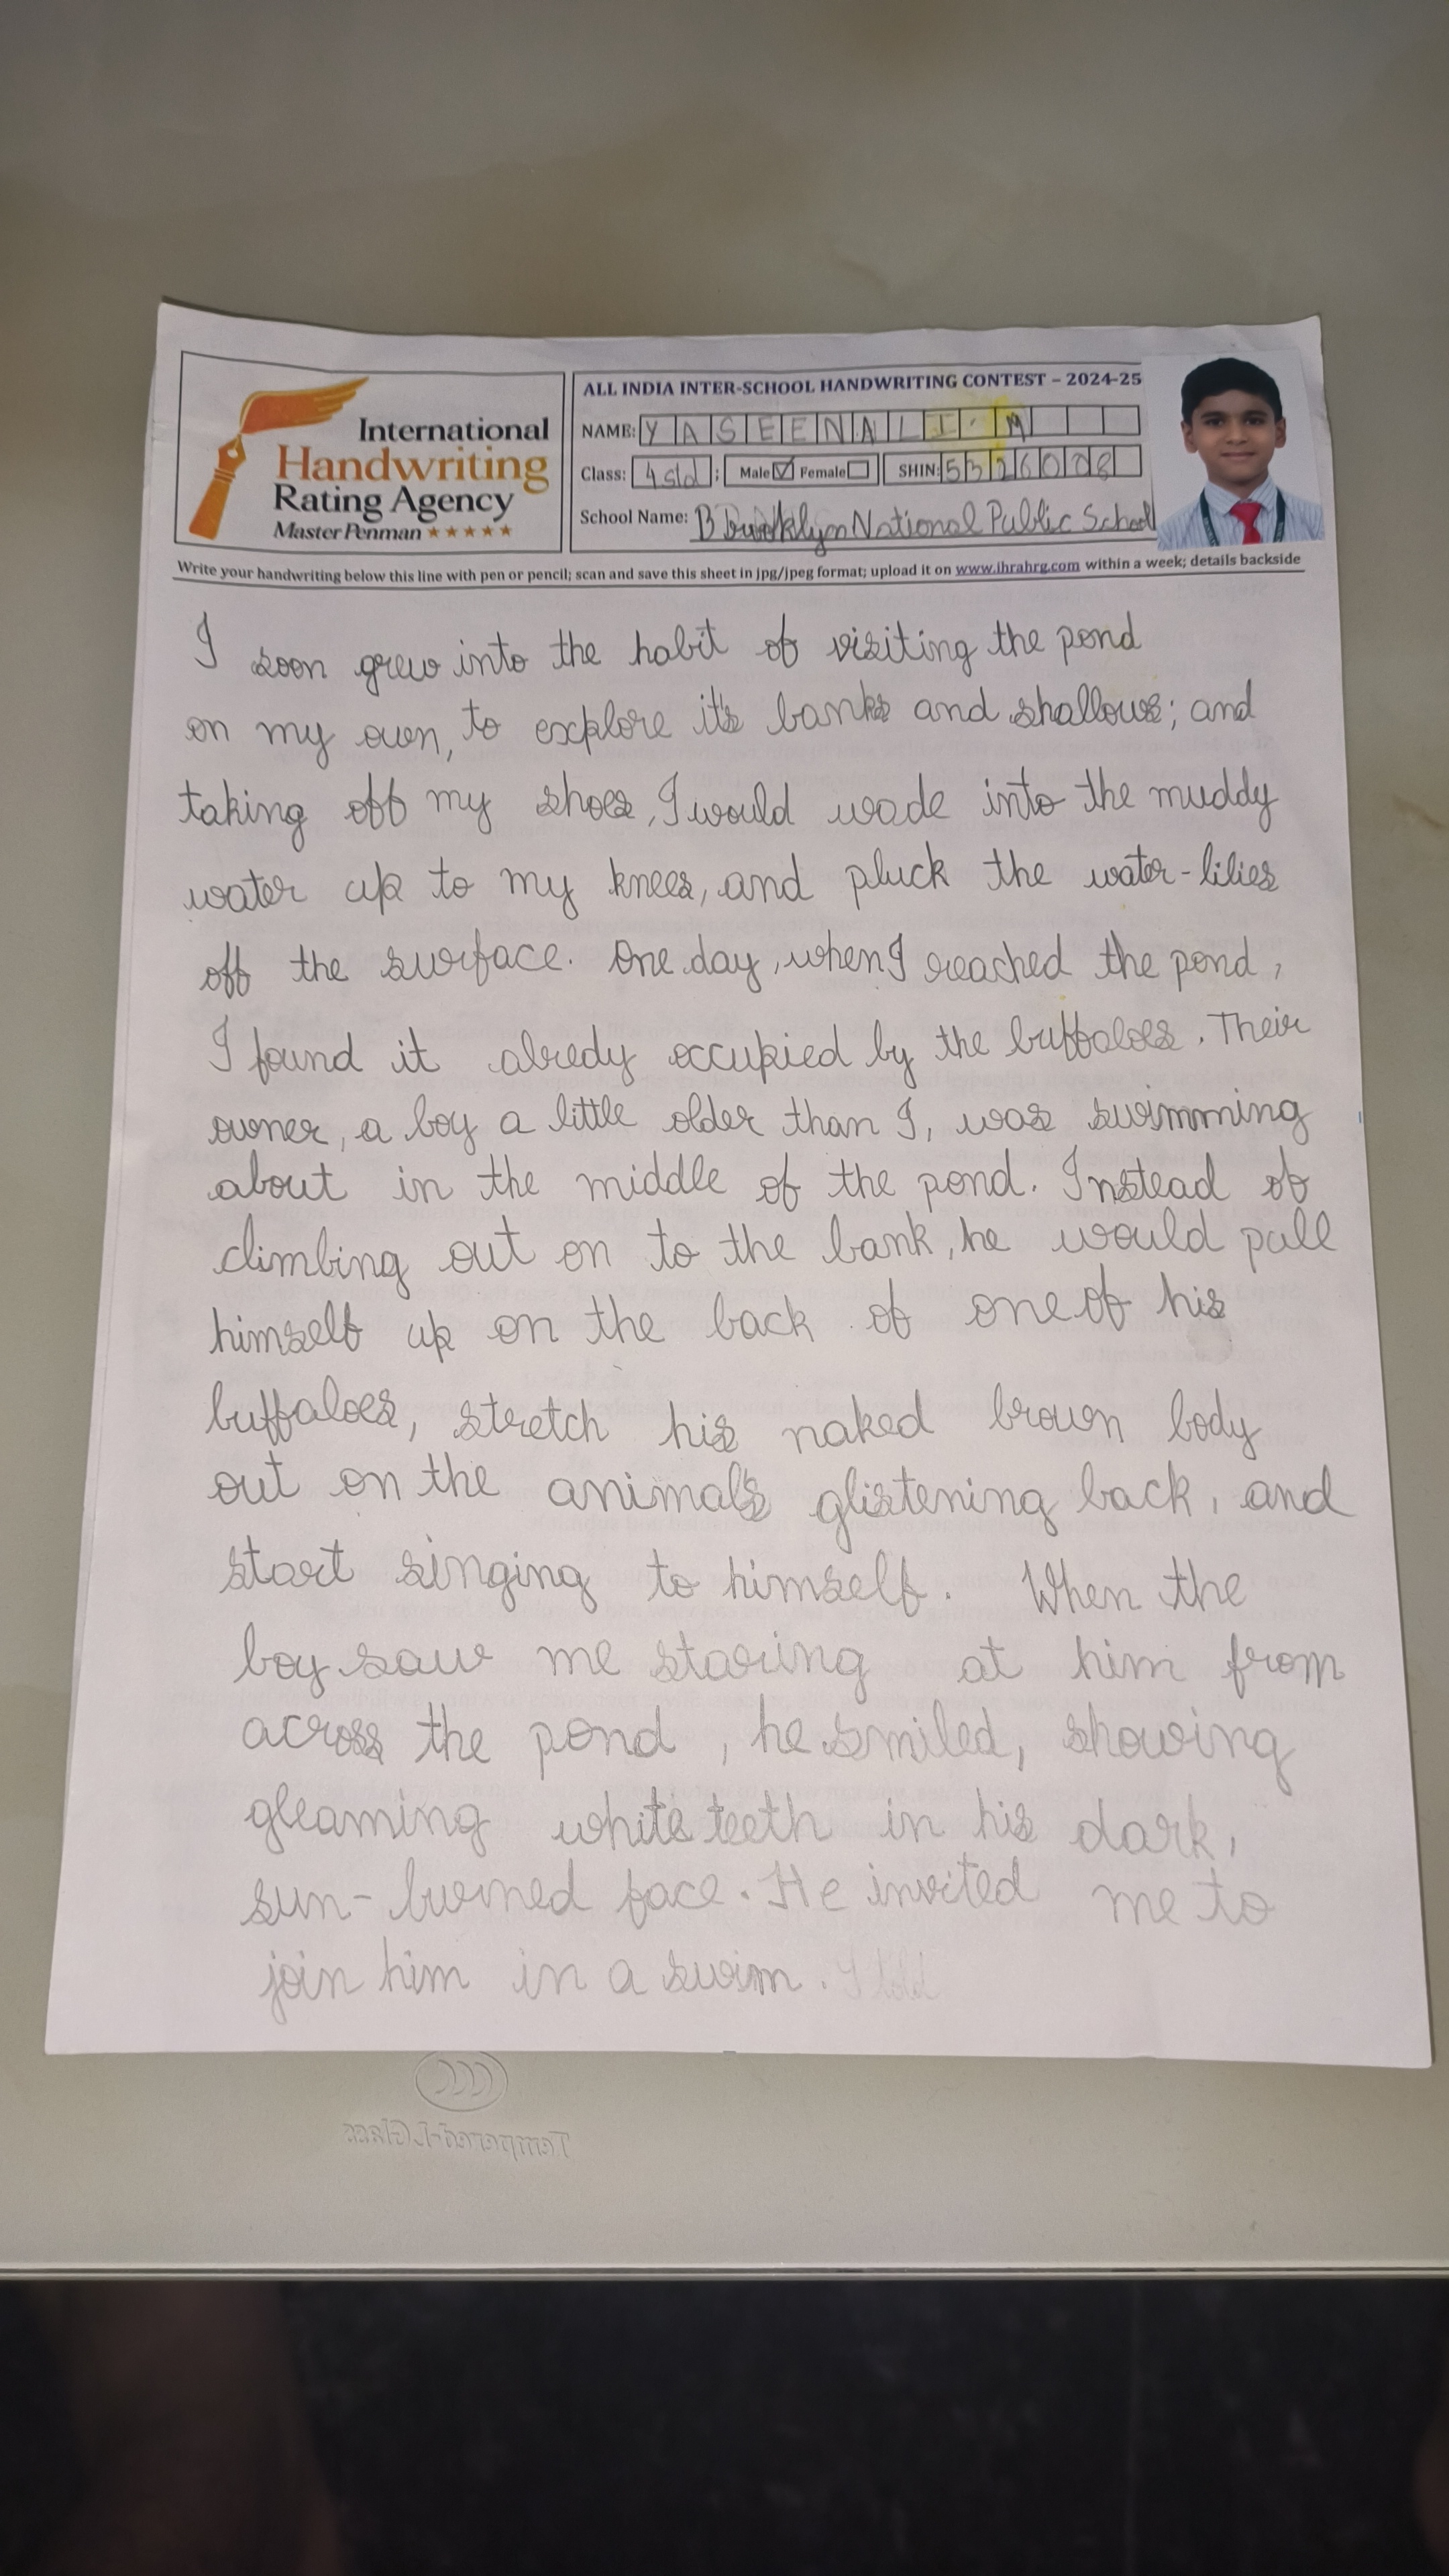 International
Handwriting
Rating Agency
Master Penman ★★★★★
ALL INDIA INTER-SCHOOL HANDWRITING CONTEST – 2024-25
NAME: YASEENALI. M
Class: 4 std ; Male ☑ Female ☐ SHIN:
School Name: Brooklyn National Public School
Write your handwriting below this line with pen or pencil; scan and save this sheet in jpg/jpeg format; upload it on www.ihrahrg.com within a week; details backside
I soon grew into the habit of visiting the pond
on my own, to explore it's banks and shallows; and
taking off my shoes, I would wade into the muddy
water up to my knees, and pluck the water-lilies
off the surface. One day, when I reached the pond,
I found it alredy occupied by the buffaloes. Their
owner, a boy a little older than I, was swimming
about in the middle of the pond. Instead of
climbing out on to the bank, he would pull
himself up on the back of one of his
buffaloes, stretch his naked brown body
out on the animal's glistening back, and
start singing to himself. When the
boy saw me staring at him from
across the pond, he smiled, showing
gleaming white teeth in his dark,
sun-burned face. He invited me to
join him in a swim. I told
Tempered-L-Glass